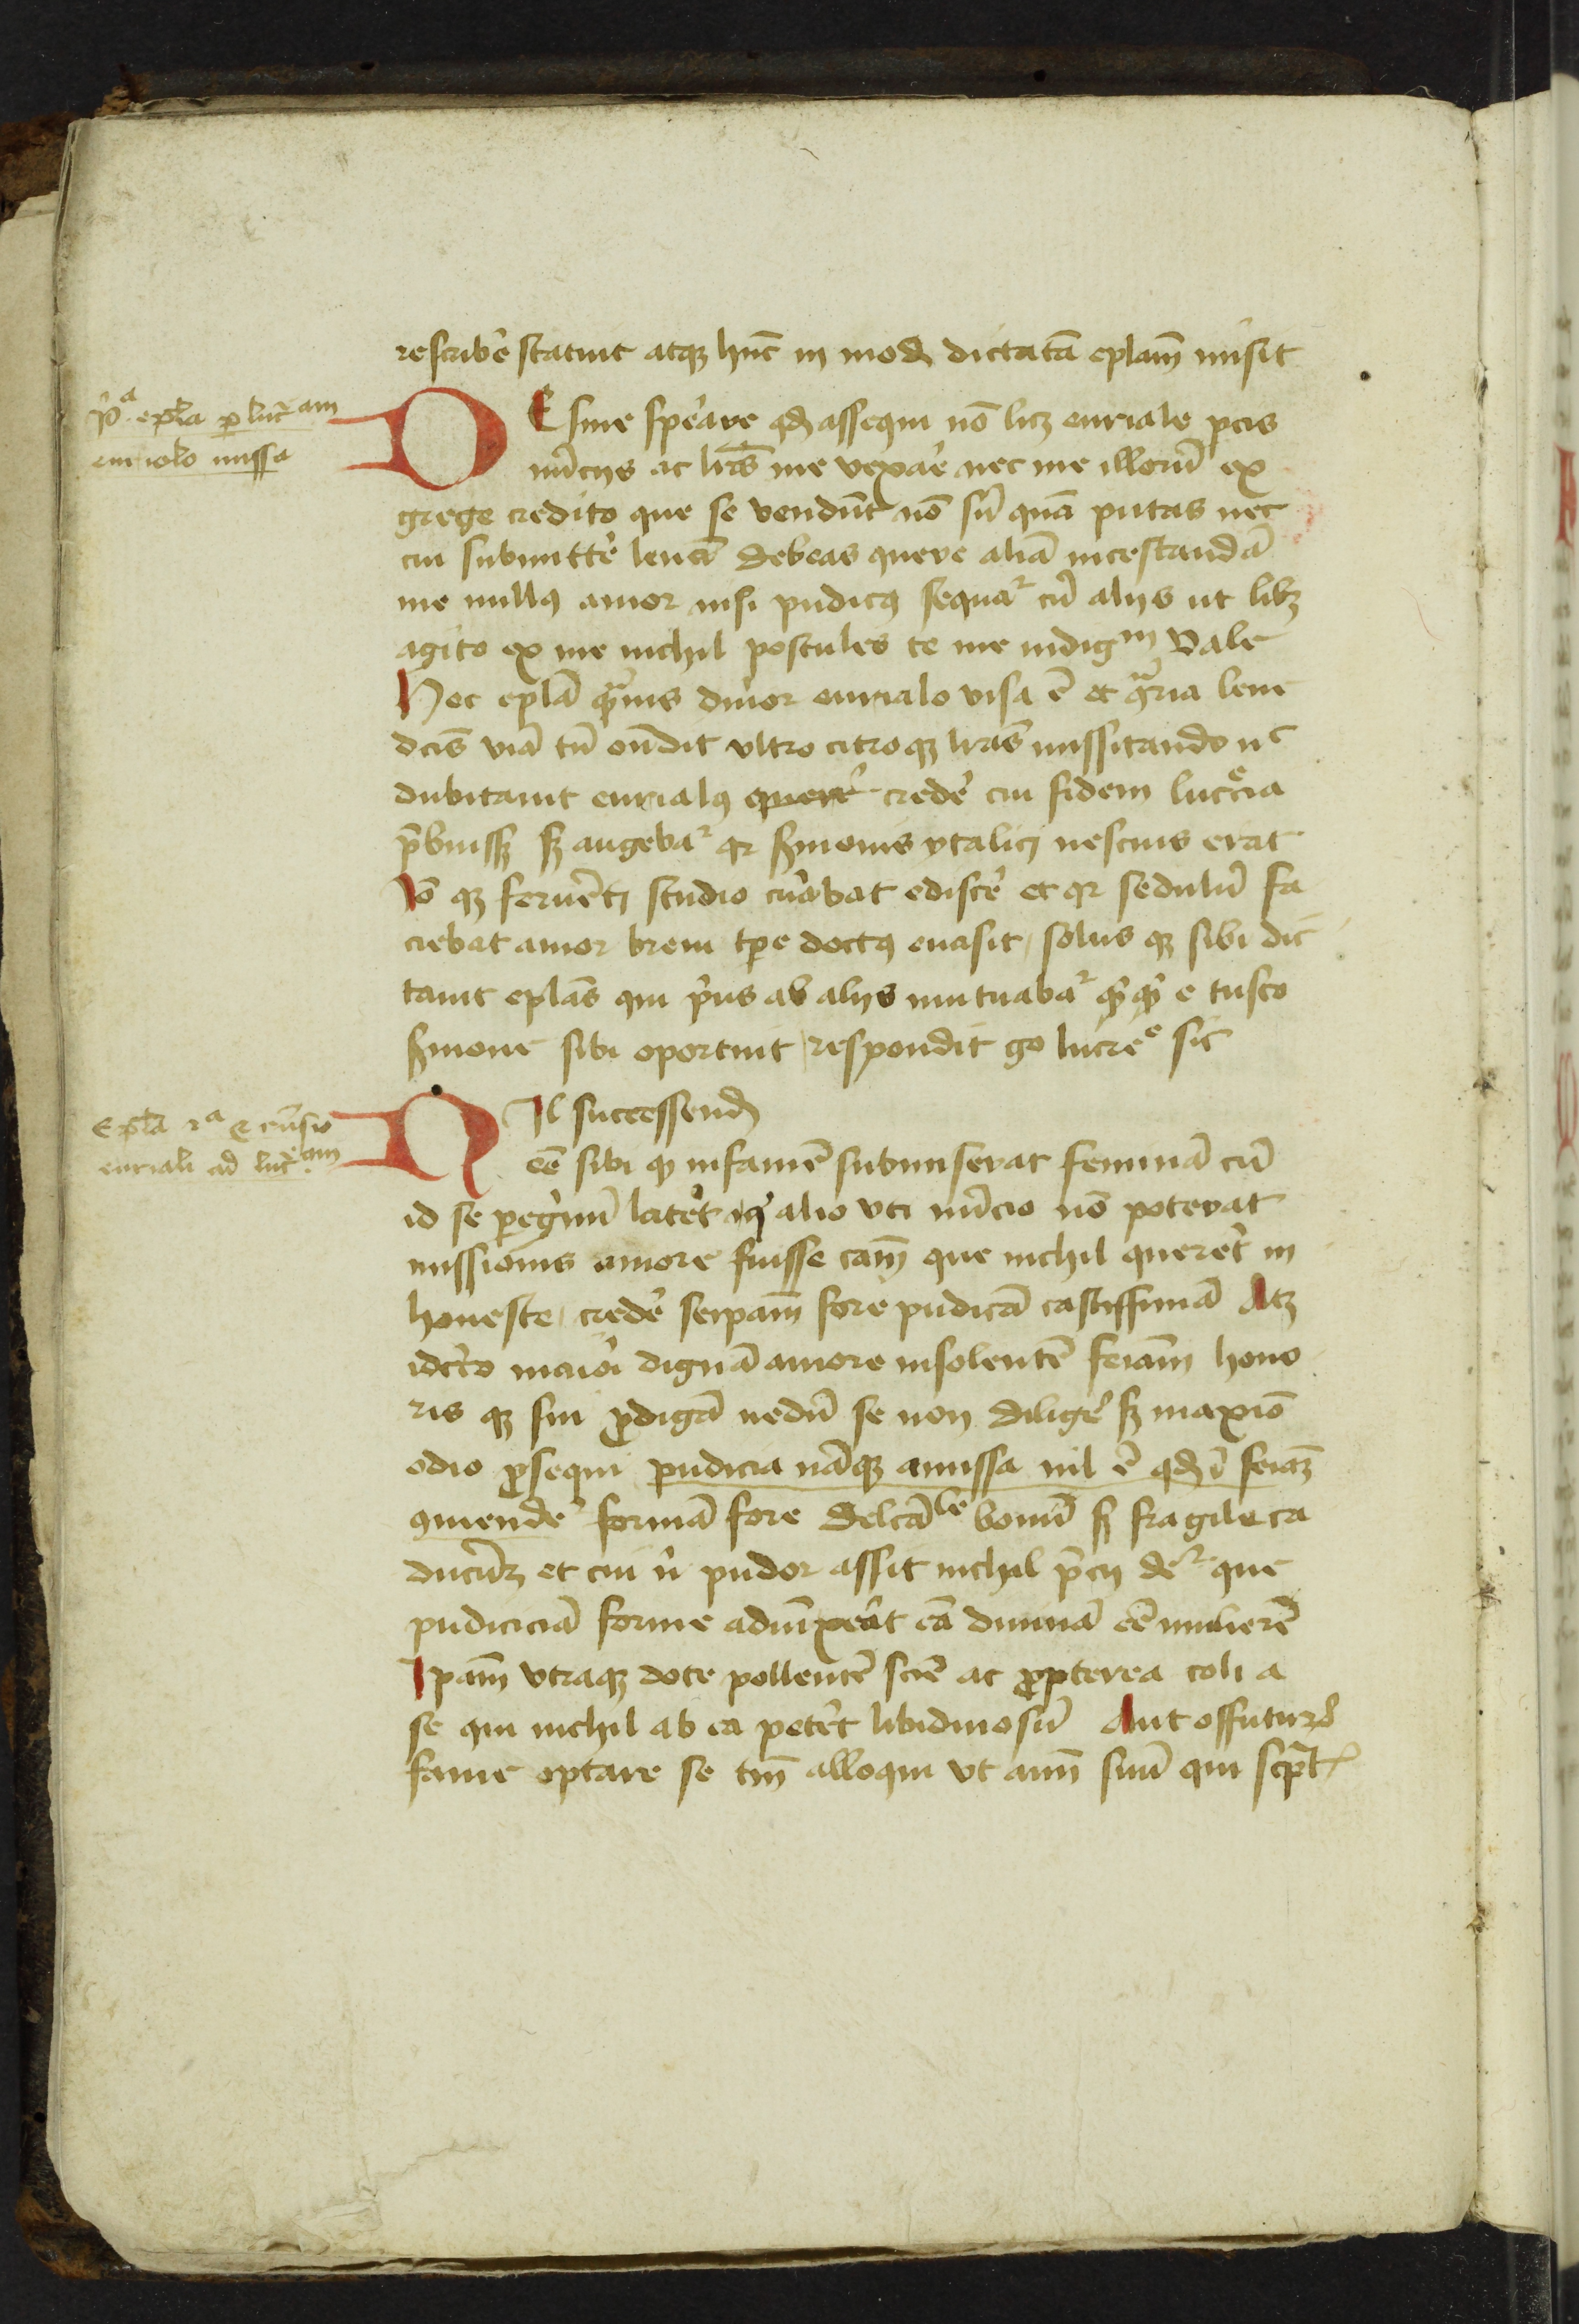 rescribe᷎ statuit atqꝫ hu̅c in modꝫ dictata̅ epl̅am misit
p̾ᵃ epl̅a ꝑ luc̅ am
eurialo missa
DEsine sp̲erare qꝫ assequi no̅ licꝫ euriale pcis
nu̅cijs ac lr̅is me vexar̅e nec me illoru̅ ex
grege credito que se vendu̅t no̅ su̅ qua̅ putas nec
cui submitte᷎ lena̅ debeas quere alia̅ incestanda̅
me nullꝰ amor nisi pudicꝰ sequat᷑ cu̅ alijs ut libꝫ
agito ex me nichil postules te me indigᵐ Vale
Hec epl̅a qᵃ̅uis durior eurialo visa e̅ et 9ᵃria lene
dcis via̅ tn̅ on̅dit vltro citroqꝫ lr̅as missitando nᶜ
dubitauit eurialꝰ quere᷎ crede᷎ cui fidem lucᵉ̅cia
p̅buissꝫ sꝫ angebat᷑ qꝛ s̅monis ytalici nescius erat
Io̅ qꝫ ferue̅ti studio cu᷎abat edisce᷎ et qꝛ sedulu̅ fa
ciebat amor breui tp̲e doctꝰ euasit, solus qꝫ sibi dic
tauit epl̅as qui p᷎us ab alijs mutuabat᷑ q̾cq̾d e tusco
s̅mone sibi oportuit respondit go lucreᵉ sic
Epl̅a 2ᵃ respo̅sio
euriali ad luc̅ᵃᵐ
NIl successendꝫ
ee̅ sibi qꝫ infame̅ submiserat femina̅ cu̅
id se ꝑeg᷎nu̅ latet᷎ atqꝫ alio vti nu̅cio no̅ poterat
missionis amore fuisse cam̅ que nichil queret᷎ in
honeste, crede᷎ seip̅am fore pudica̅ castissima̅ Atqꝫ
idcr̅o maiori digna̅ amore insolente̅ feia̅m hono
ris qꝫ sui ꝓdiga̅ nedu̅ se non dilige᷎ sꝫ maxi̅o
odio ꝓsequi pudicia na̅qꝫ amissa nil e̅ qꝫ i̅ feia̅ꝫ
9mende᷎ forma̅ fore delca̅ˡᵉ bonu̅ sꝫ fragile ca
ducu̅ꝫ et cui n᷎ pudor assit nichil p̅cij deᵗ᷑ que
pudicicia̅ forme adiu̅xerit ea̅ diuina̅ ee̅ muliere̅
Ip̅am vtraqꝫ dote pollente̅ scir̅e ac ꝓpterea coli a
se qui nichil ab ea petet᷎ libidinosu̅ Aut offuturu̅
fame optare se tm̅ alloqui vt aim̅ suu̅ qui scp̅t᷑